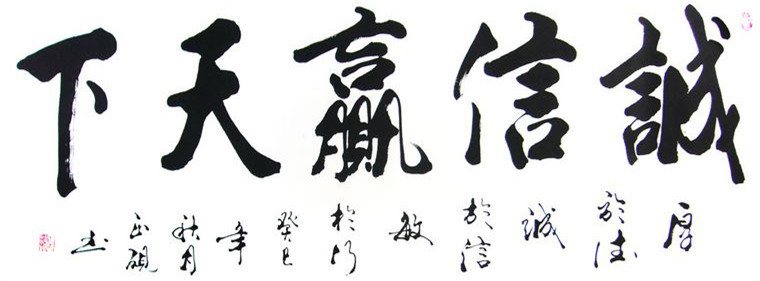 誠信贏天下
厚於德誠於信敏於行癸巳年秋月書